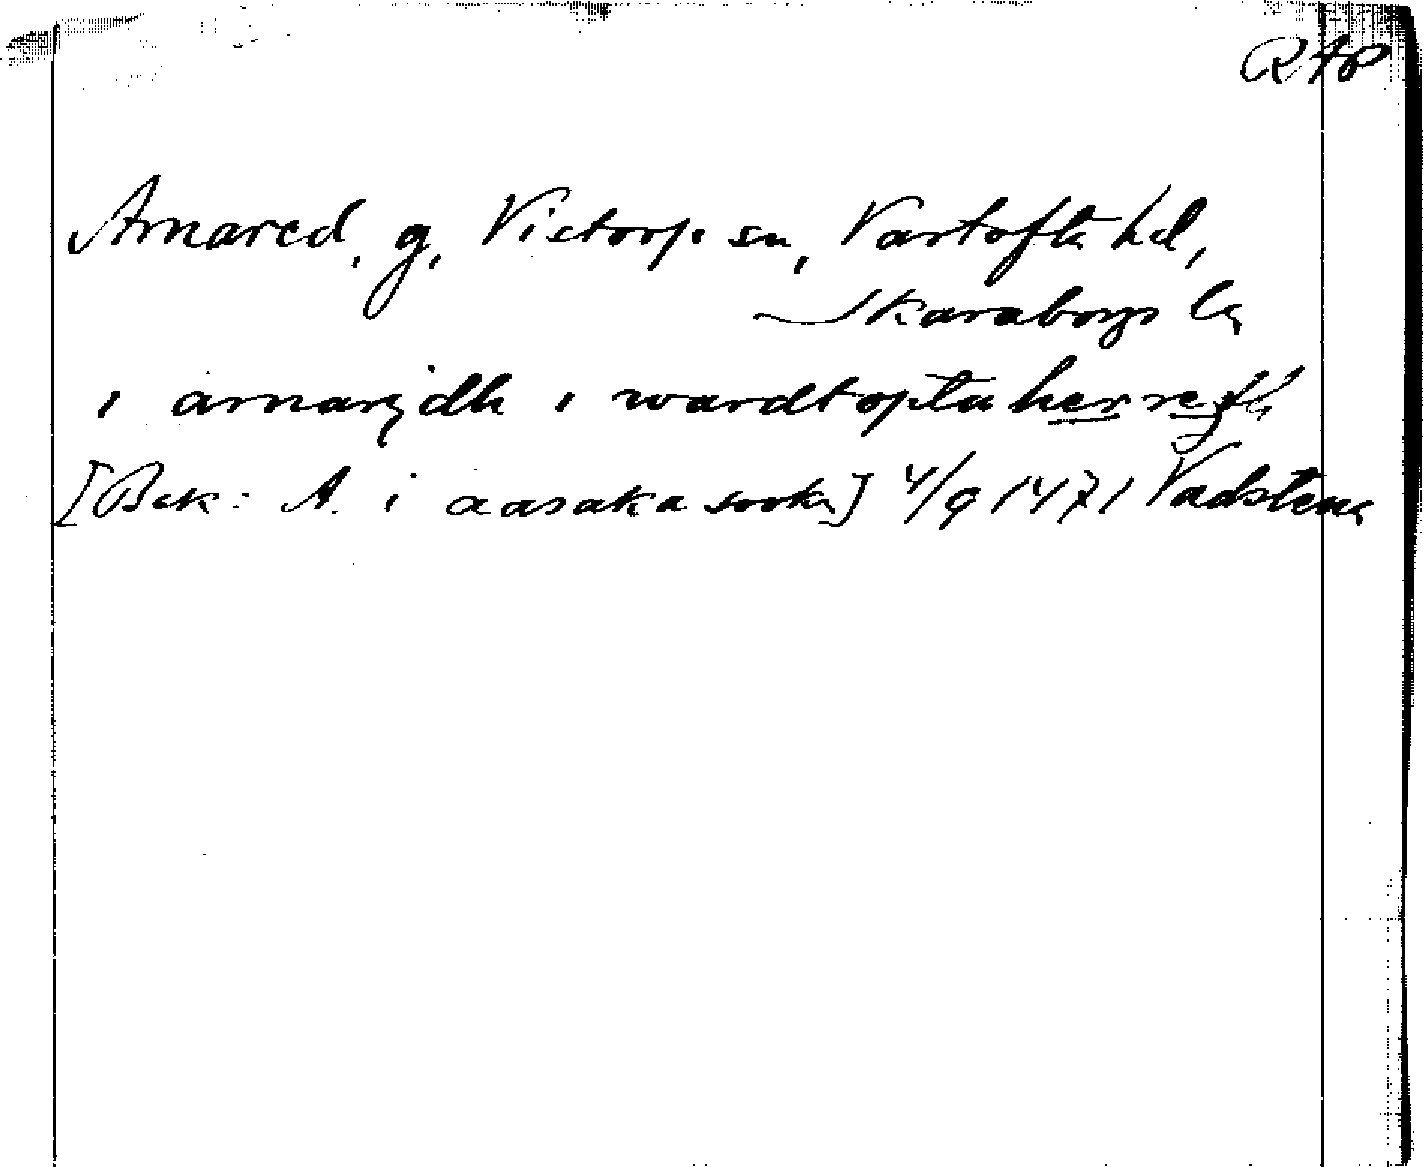 RAP
Arnared, g, Vistorp sn, Vartofta hd,
Skaraborgs l
i arnarydh i wardtopta
[Bak: A. i aasaka sokn] 4/9 1471 Vadstena